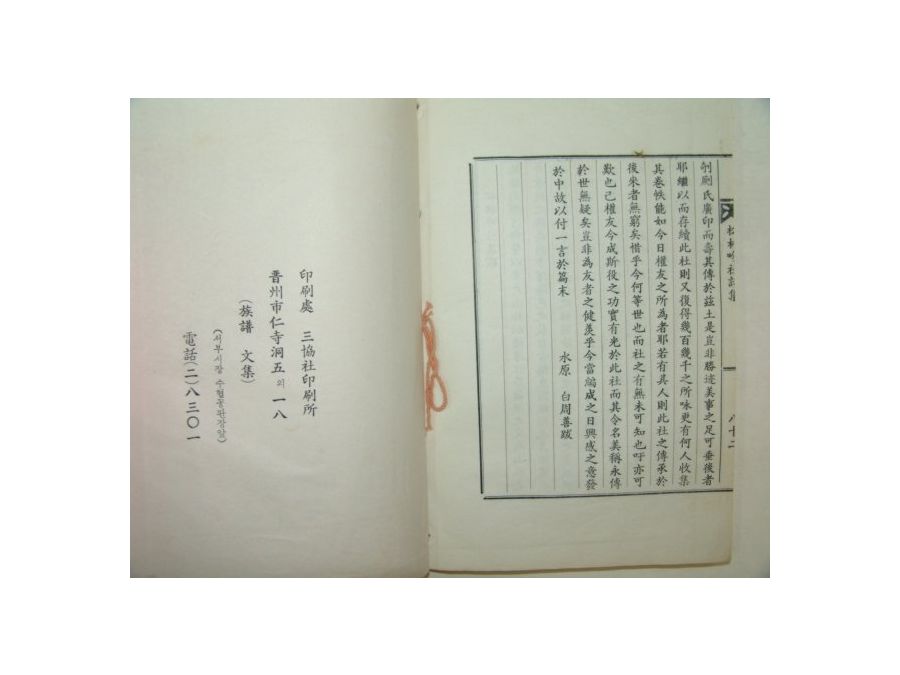 剞劂氏廣印而壽其傳於玆土是豈非勝蹟美事之足可垂後者
耶繼以而存續此社則又復得幾百幾千之所咏更有何人收集
其卷帙能如今日權友之所為者耶若有其人則此社之傳承於
後來者無窮矣惜乎今何等世也而社之有無未可知也吁亦可
歎也已權友今成斯役之功實有光於此社而其令名美稱永傳
於世無疑矣豈非為友者之健羨乎今當編成之日興感之意發
於中故以付一言於篇末
水原 白周善跋
八十二
印刷處 三協社印刷所
晋州市仁寺洞五의一八
(族譜 文集)
(서부시장 수협공판장앞)
電話(二)八三〇一